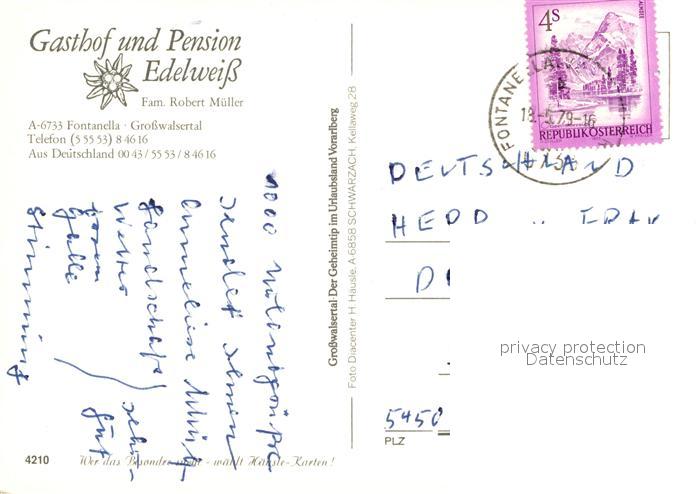 Gasthof und Pension
Edelweiß
Fam. Robert Müller
A-6733 Fontanella · Großwalsertal
Telefon (5 55 53) 8 46 16
Aus Deutschland 00 43 / 55 53 / 8 46 16
1000 Urlaubsgrüße
sendet Ihnen
Anneliese
Landschaft
Wetter
gute
Stimmung
4210
Wer das Besondre - wählt Häusle-Karten!
Großwalsertal · Der Geheimtip im Urlaubsland Vorarlberg
Foto Diacenter H. Häusle, A-6858 SCHWARZACH, Kellaweg 28
4S
ALMSEE
REPUBLIK ÖSTERREICH
FONTANELLA
79-16
DEUTSCHLAND
HERR
5450
PLZ
privacy protection
Datenschutz